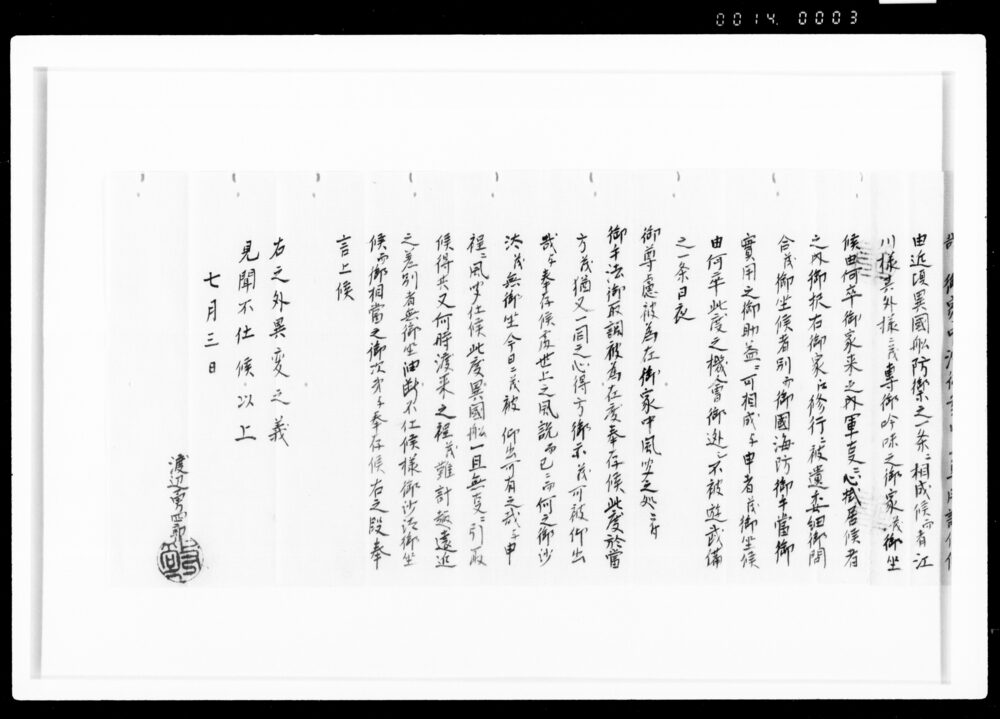 0014. 0003
由近頃異國船防禦之一条ニ相成候而者江
川様其外様ニ茂專御吟味之御家茂御坐
候由何卒御家来之内軍支ニ心掛居候者
之内御抜右御家江修行ニ被遣委細御聞
合茂御坐候者別而御國海防御手當御
實用之御助益ニ可相成与申者茂御坐候
由何卒此度之機會御迯シ不被遊武備
之一条日夜
御尊慮被為在御家中風坐之処ニ付
御手法御取調被為在度奉存候此度於當
方茂猶又一同之心得方御示茂可被仰出
哉与奉存候處世上之風説而已ニ而何之御沙
汰茂無御坐今日ニ茂被 仰出可有之哉与申
裡ニ風坐仕候此度異國船一旦無支ニ引取
候得共又何時渡来之程茂難計遠近
之差別者無御坐油断不仕候様御沙汰御坐
候而御相當之御次第与奉存候右之段奉
言上候
右之外異変之義
見聞不仕候以上
七月三日
渡辺勇四郎